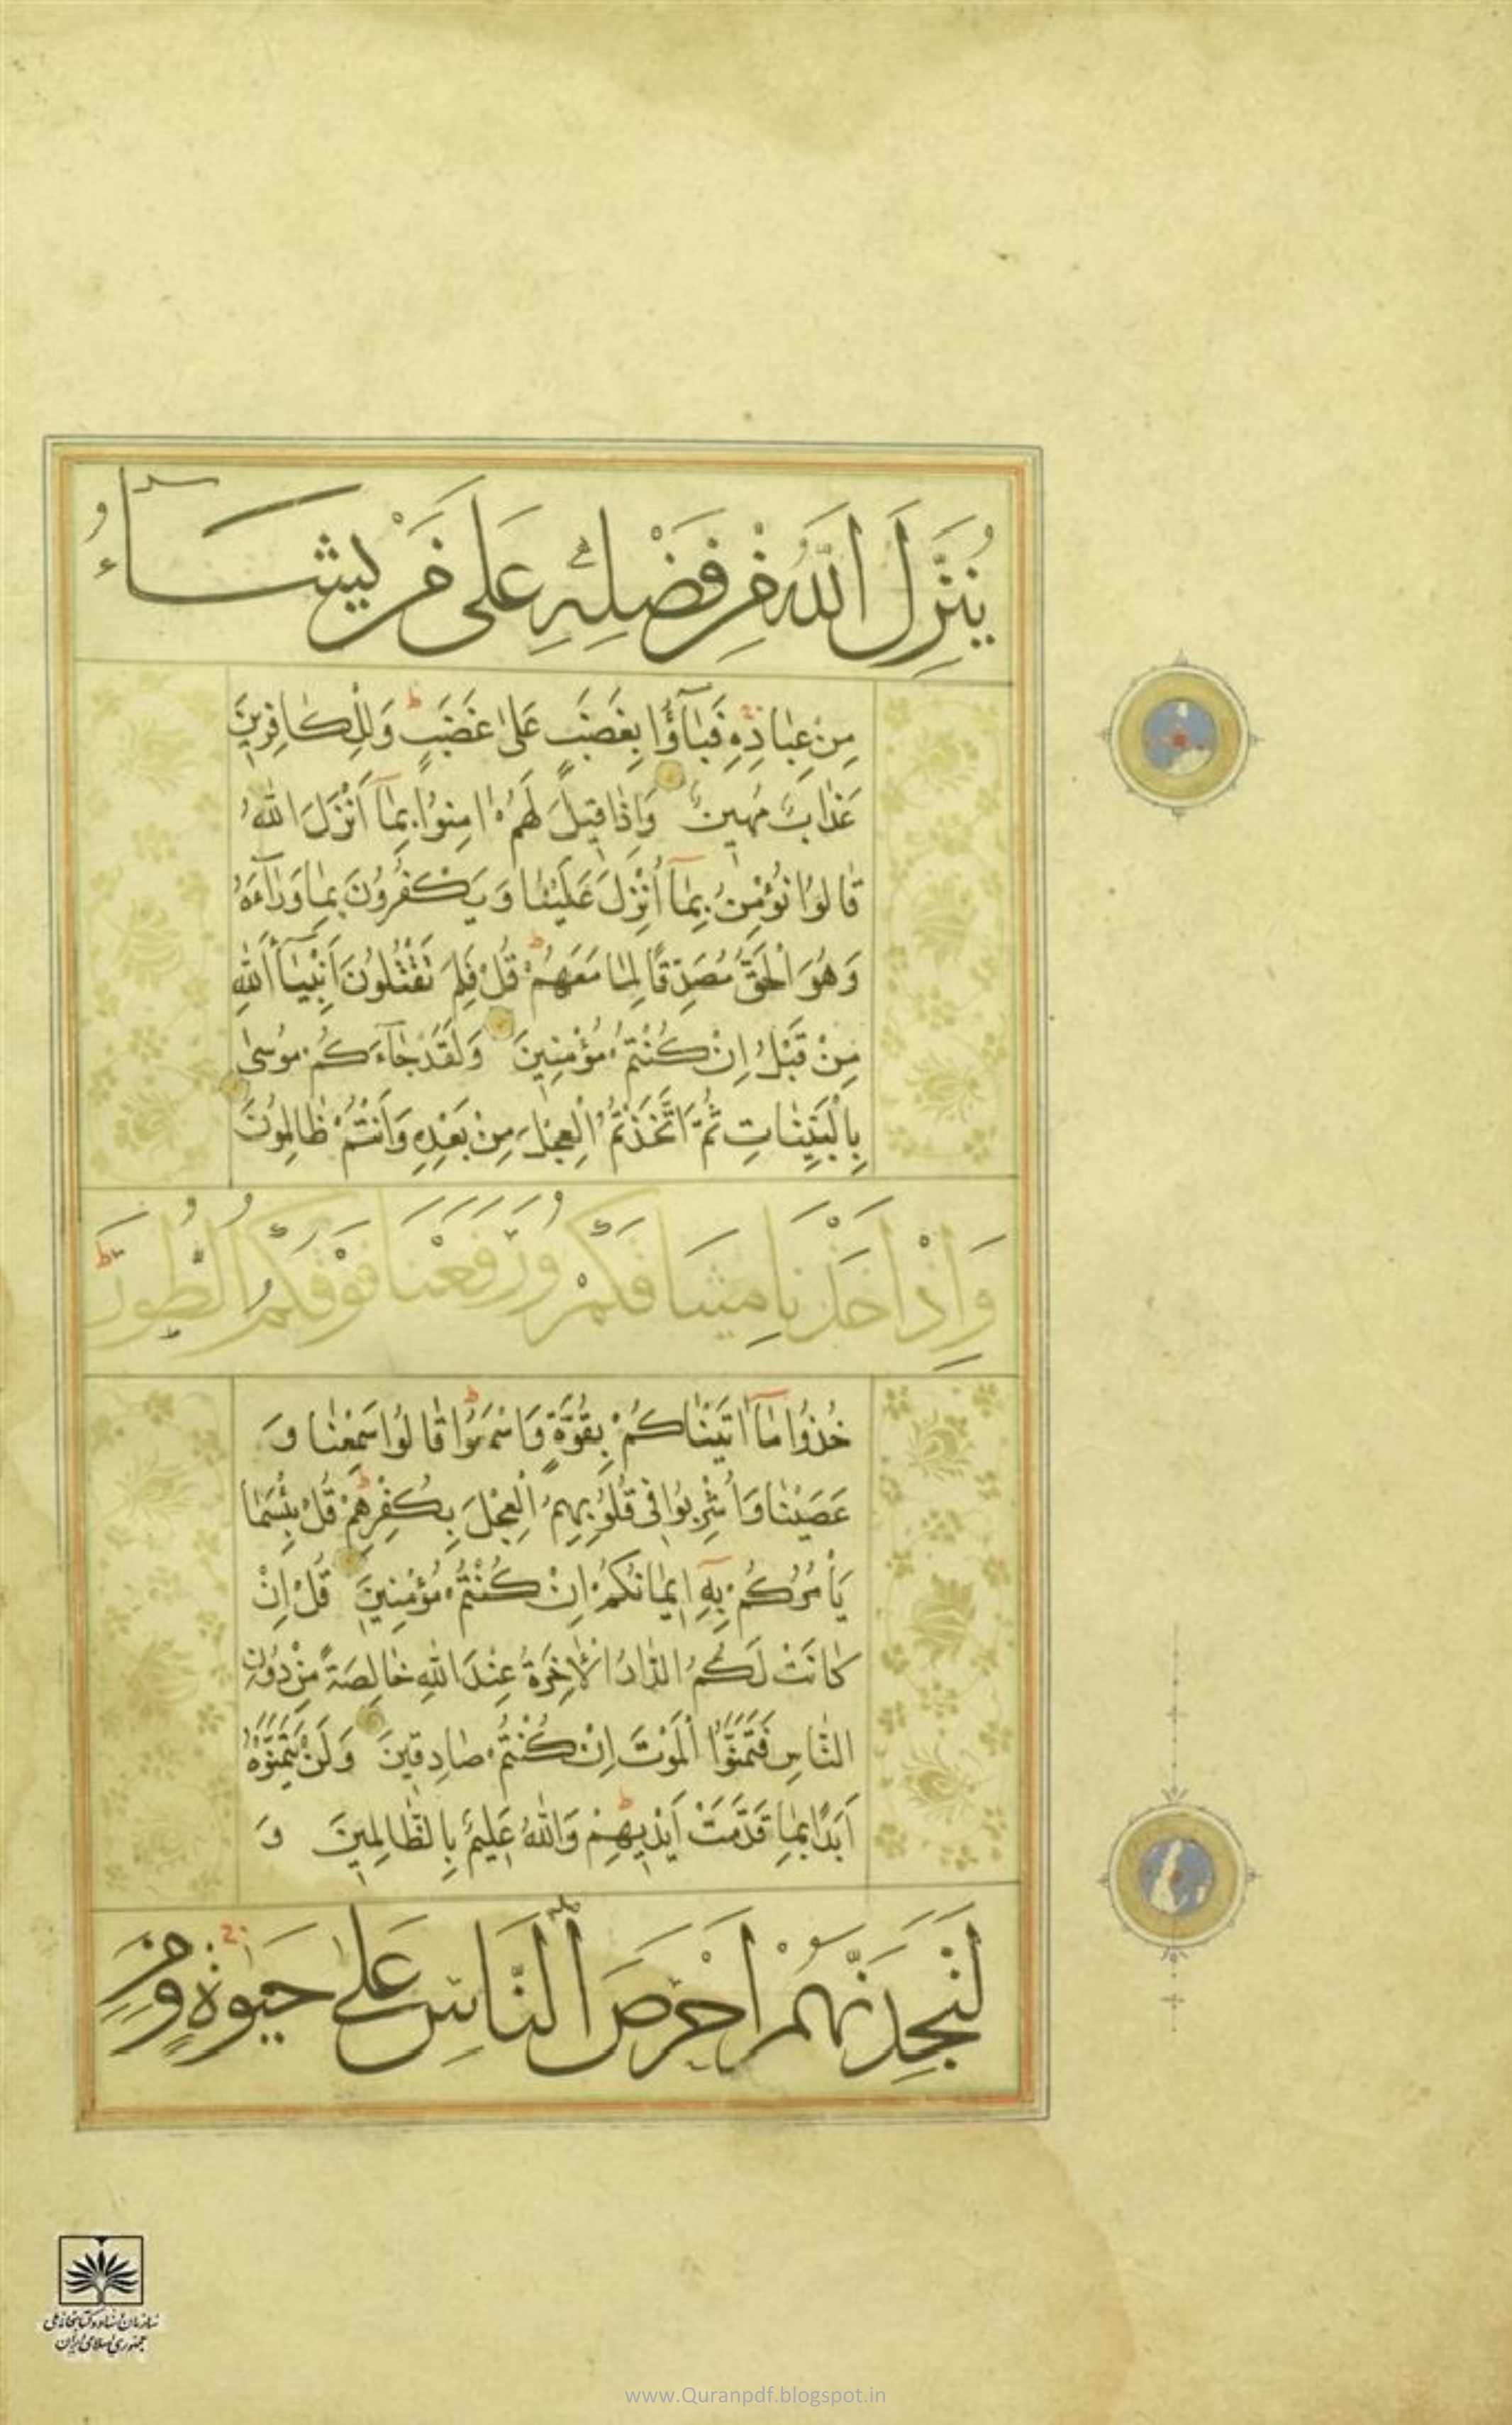 يُنَزِّلَ اللّٰهُ مِنْ فَضْلِهٖ عَلٰى مَنْ يَشَآءُ
مِنْ عِبَادِهٖ فَبَآؤُا بِغَضَبٍ عَلٰى غَضَبٍ ط وَلِلْكَافِرِينَ
عَذَابٌ مُهِينٌ وَاِذَا قِيلَ لَهُمْ اٰمِنُوا بِمَآ اَنْزَلَ اللّٰهُ
قَالُوا نُؤْمِنُ بِمَآ اُنْزِلَ عَلَيْنَا وَيَكْفُرُونَ بِمَا وَرَآءَهُ
وَهُوَ الْحَقُّ مُصَدِّقًا لِمَا مَعَهُمْ ط قُلْ فَلِمَ تَقْتُلُونَ اَنْبِيَآءَ اللّٰهِ
مِنْ قَبْلُ اِنْ كُنْتُمْ مُؤْمِنِينَ وَلَقَدْ جَآءَكُمْ مُوسٰى
بِالْبَيِّنَاتِ ثُمَّ اتَّخَذْتُمُ الْعِجْلَ مِنْ بَعْدِهٖ وَاَنْتُمْ ظَالِمُونَ
وَاِذْ اَخَذْنَا مِيثَاقَكُمْ وَرَفَعْنَا فَوْقَكُمُ الطُّورَ ط
خُذُوا مَآ اٰتَيْنَاكُمْ بِقُوَّةٍ وَاسْمَعُوا ط قَالُوا سَمِعْنَا وَ
عَصَيْنَا وَاُشْرِبُوا فِى قُلُوبِهِمُ الْعِجْلَ بِكُفْرِهِمْ ط قُلْ بِئْسَمَا
يَاْمُرُكُمْ بِهٖٓ اِيمَانُكُمْ اِنْ كُنْتُمْ مُؤْمِنِينَ قُلْ اِنْ
كَانَتْ لَكُمُ الدَّارُ الْاٰخِرَةُ عِنْدَ اللّٰهِ خَالِصَةً مِنْ دُونِ
النَّاسِ فَتَمَنَّوُا الْمَوْتَ اِنْ كُنْتُمْ صَادِقِينَ وَلَنْ يَتَمَنَّوْهُ
اَبَدًا بِمَا قَدَّمَتْ اَيْدِيهِمْ ط وَاللّٰهُ عَلِيمٌ بِالظَّالِمِينَ وَ
لَتَجِدَنَّهُمْ اَحْرَصَ النَّاسِ عَلٰى حَيٰوةٍ وَمِنَ
سازمان اسناد و کتابخانه ملی
جمهوری اسلامی ایران
www.Quranpdf.blogspot.in